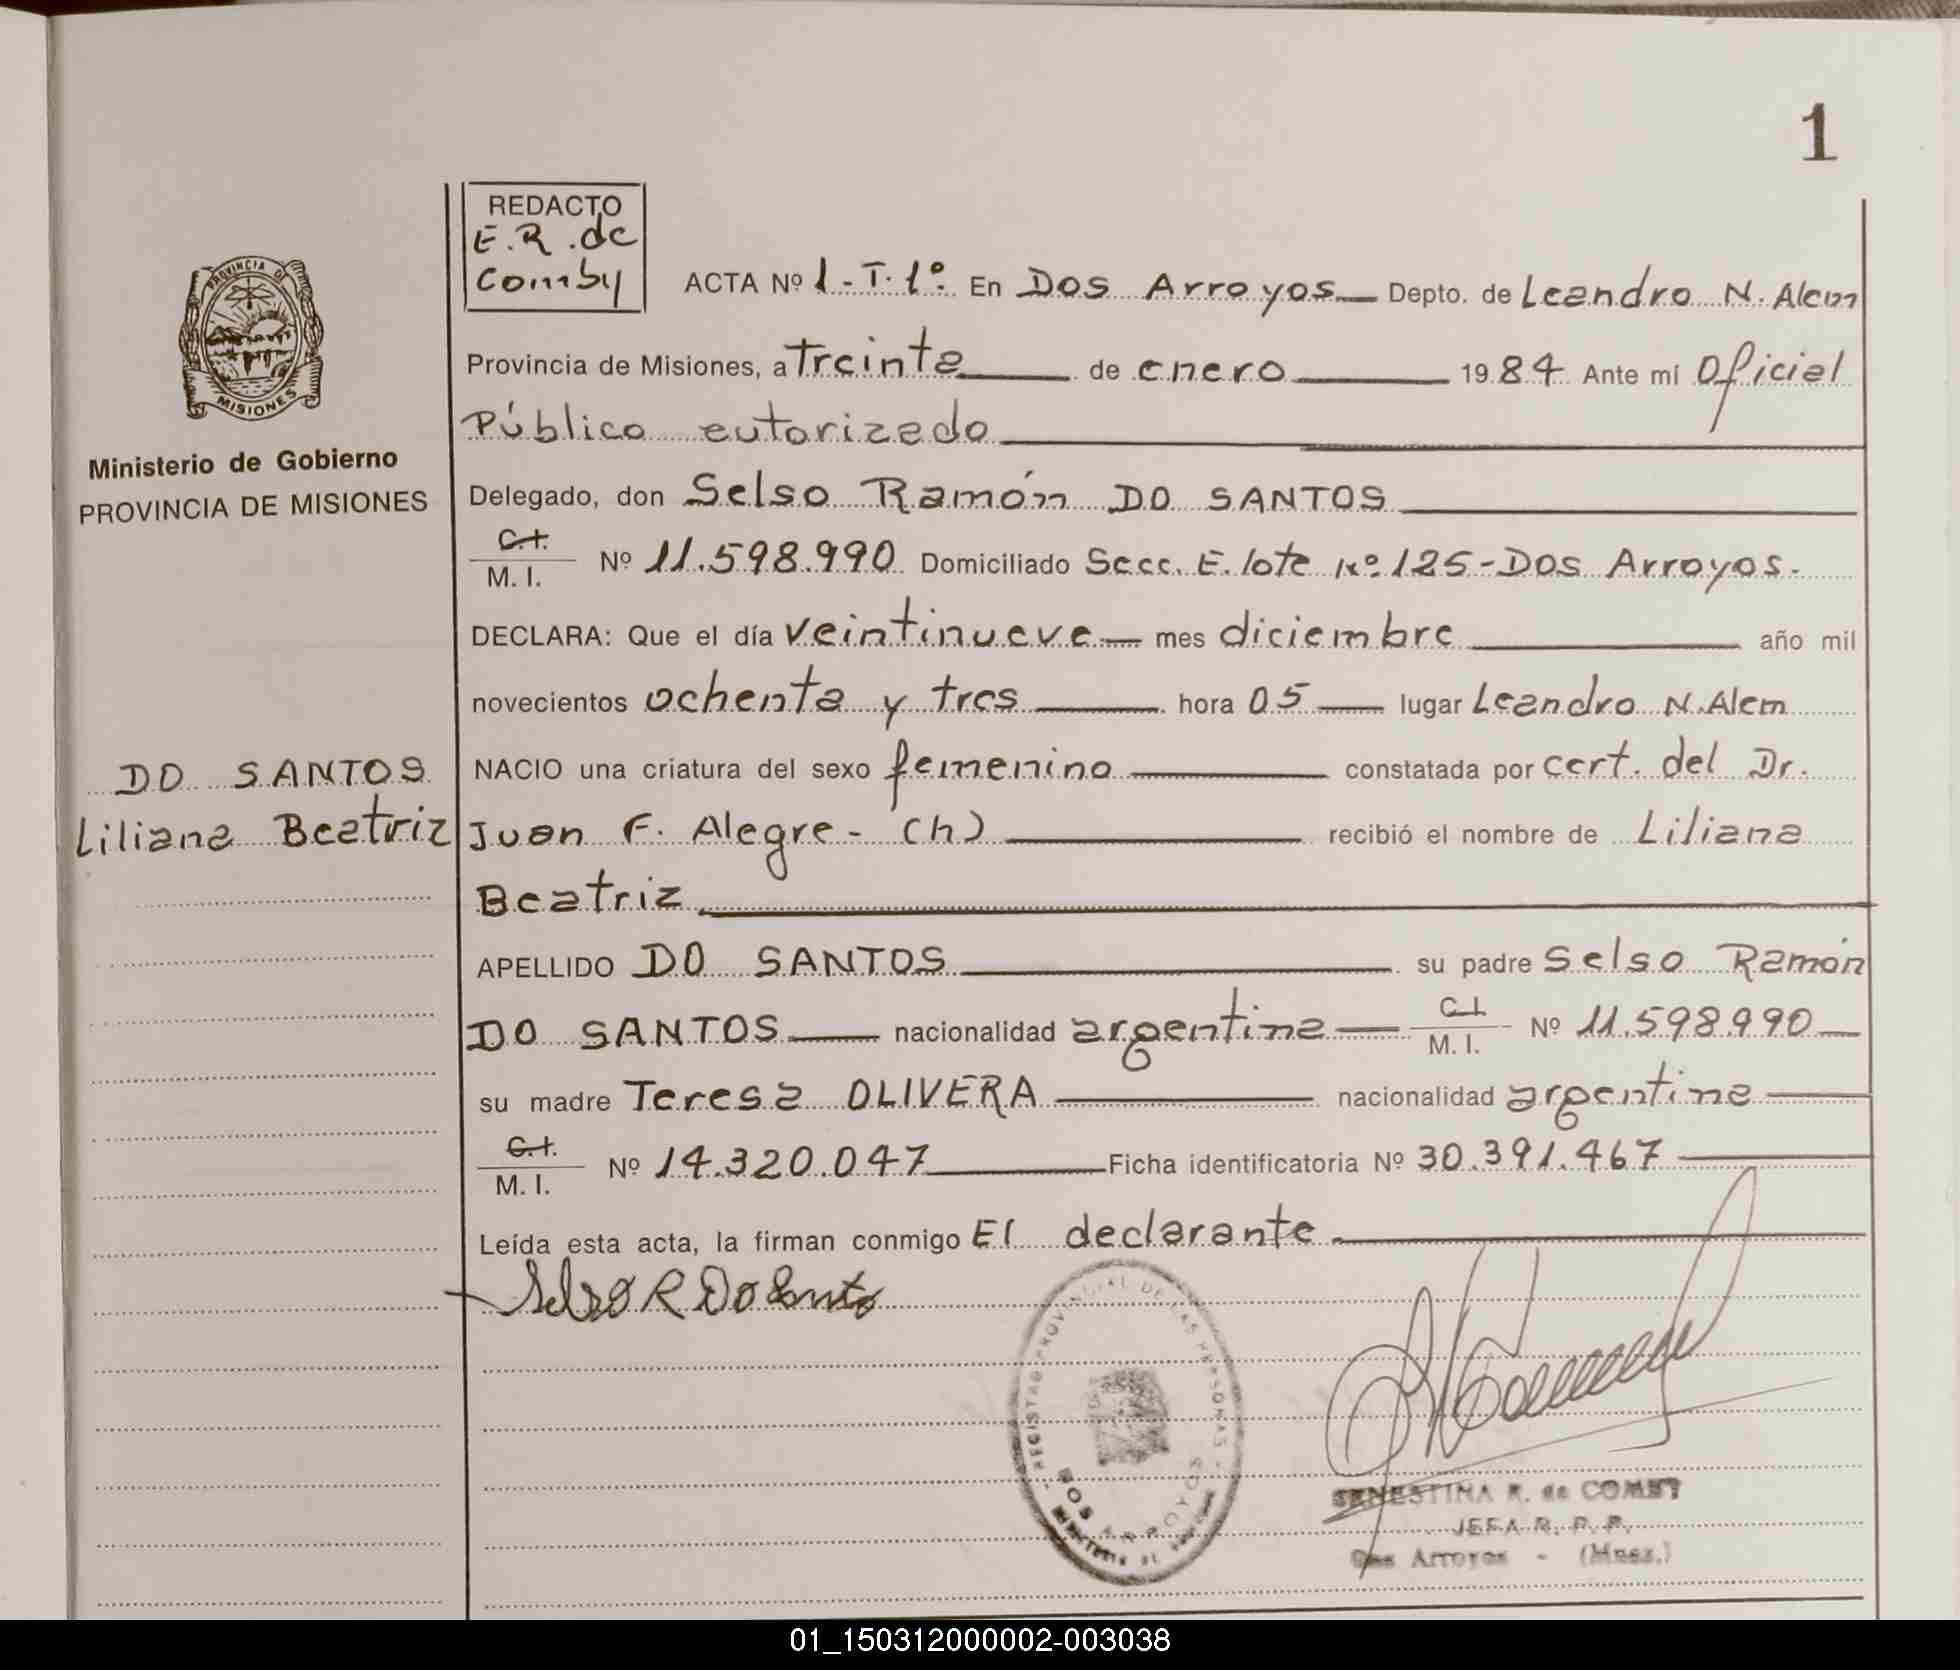 1
REDACTO
E.R. de
Comby
PROVINCIA DE
MISIONES
Ministerio de Gobierno
PROVINCIA DE MISIONES
ACTA Nº 1-T.1º. En Dos Arroyos Depto. de Leandro N. Alem
Provincia de Misiones, a Treinta de enero 1984 Ante mi Oficial
Público autorizado
Delegado, don Selso Ramón DO SANTOS
C.I.
M. I. Nº 11.598.990 Domiciliado Secc. E. lote Nº 125-Dos Arroyos.
DECLARA: Que el día veintinueve mes diciembre año mil
novecientos ochenta y tres hora 05 lugar Leandro N. Alem
NACIO una criatura del sexo femenino constatada por cert. del Dr.
DO SANTOS
Liliana Beatriz
Juan F. Alegre - (h) recibió el nombre de Liliana
Beatriz
APELLIDO DO SANTOS su padre Selso Ramón
DO SANTOS nacionalidad argentina C.I. M. I. Nº 11.598.990
su madre Teresa OLIVERA nacionalidad argentina
C.I.
M. I. Nº 14.320.047 Ficha identificatoria Nº 30.391.467
Leída esta acta, la firman conmigo El declarante
Selso R Do Santos
REGISTRO PROVINCIAL DE LAS PERSONAS
DOS ARROYOS
R. de COMBY
JEFA R. P. P.
Dos Arroyos - (Mnes.)
01_150312000002-003038